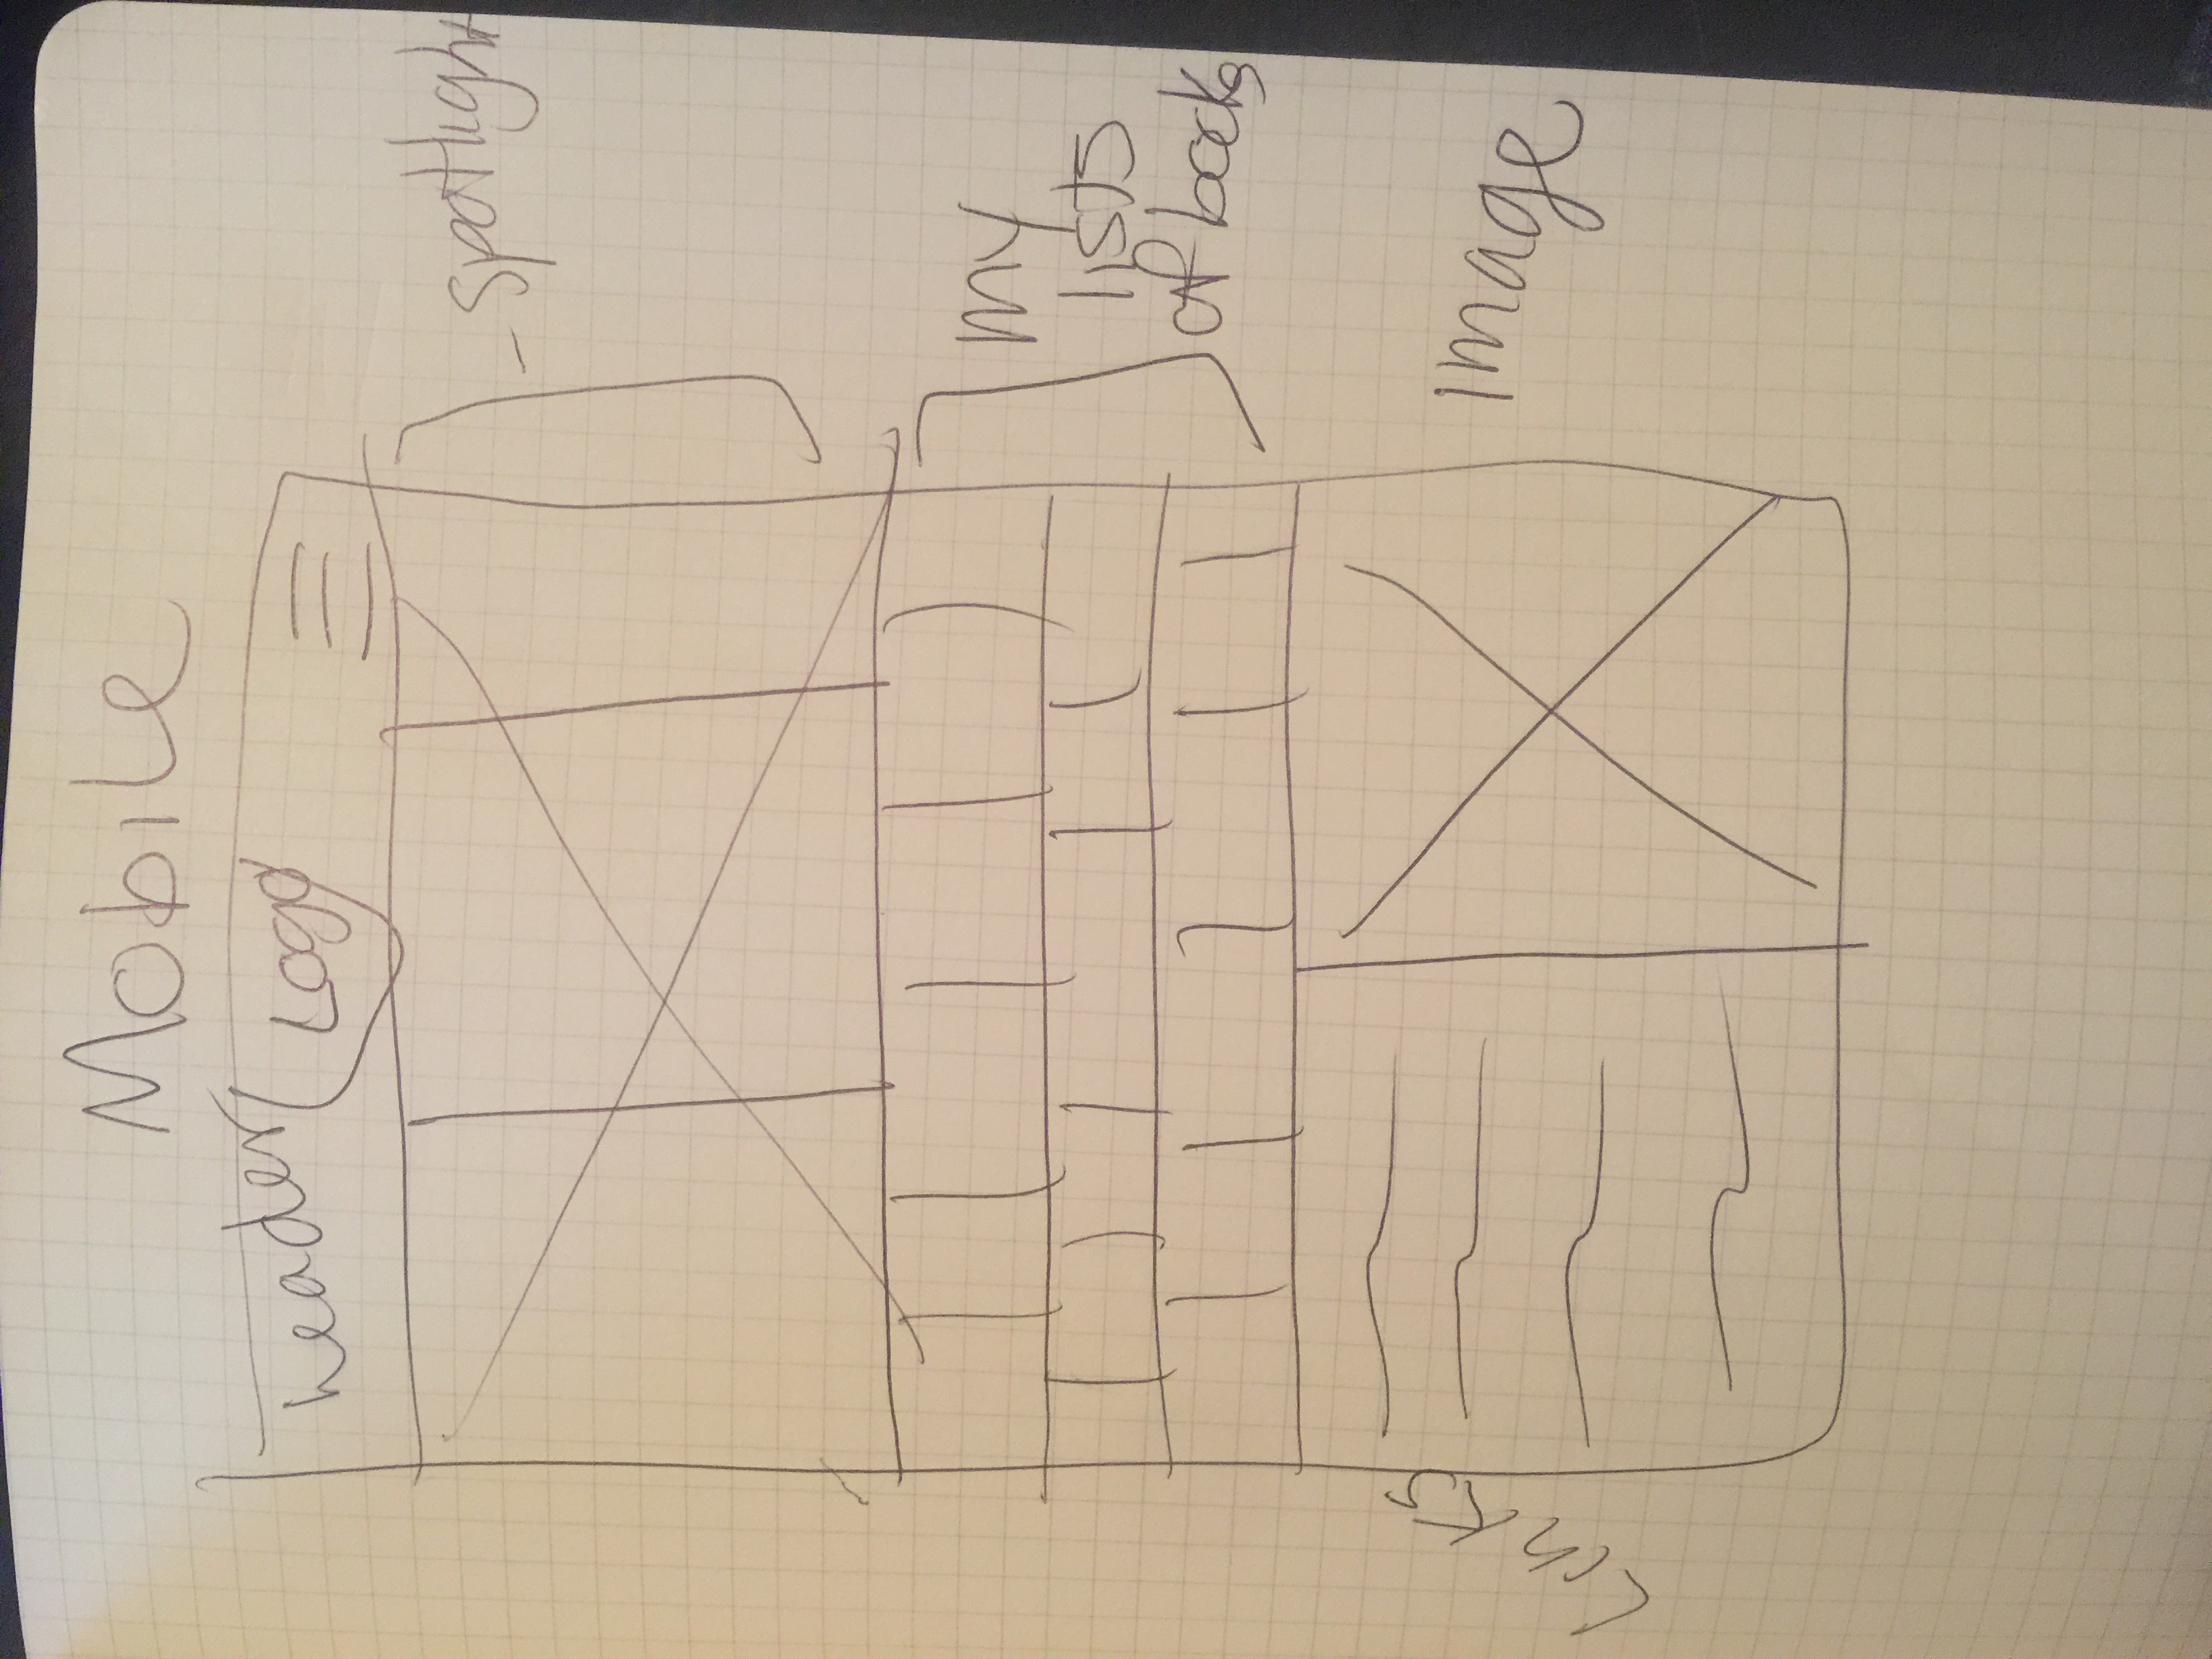 Mobile
header
Logo
- Spotlight
my
lists
of books
Image
Links